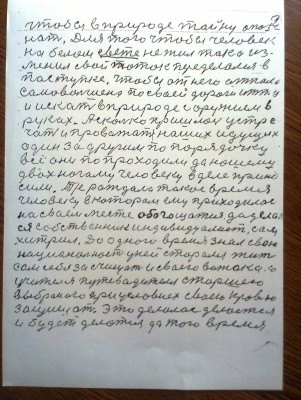 чтобы в природе тайну опозе
нат, Для того чтобы человек
на белом свете не жил така из
мения свой поток пределался в
поступке. чтобы от него отпала
самовольшено по своей дороги итти
и искат в природе с оружием в
руках. А сколко пришлось устре
чат и проватат наших идущих
один за другим по порядочку
все они по проходили да нашему
двах ногаму человеку в деле прино
сили. Тре рагдалго такое время
человеку в котором ему приходилос
на сваем месте обогощатся да дела
ся собственник индивидуалист, сам
хитрил. До одного время знал свою
национальность у ней старалс жит
сам себя засчищат и своего
учителя путеводителя старшего
выбраного при условиех своего кровю
защищат. Это делалос делается
и будет делатся да того время